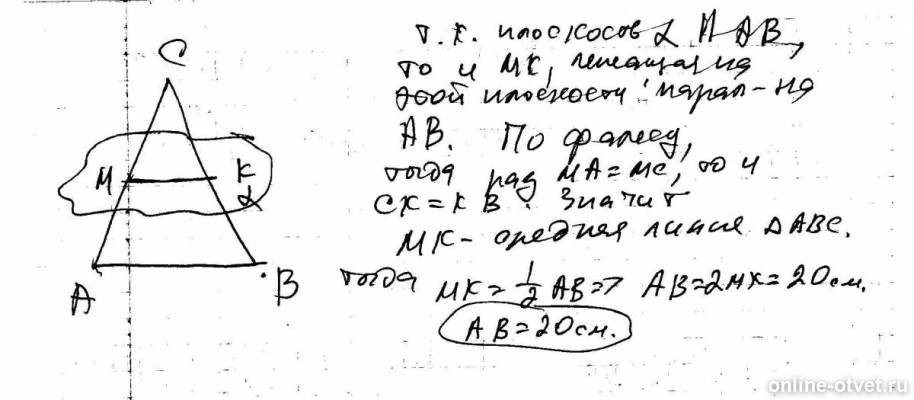 C
M K
α
A B
т.к. плоскость α || AB,
то и MK, лежащая на
этой плоскости парал-на
AB. По фалесу,
тогда раз MA=MC, то и
CK=KB. Значит
MK- средняя линия ΔABC.
тогда MK=1/2 AB=> AB=2MK=20см.
AB=20см.
online-otvet.ru